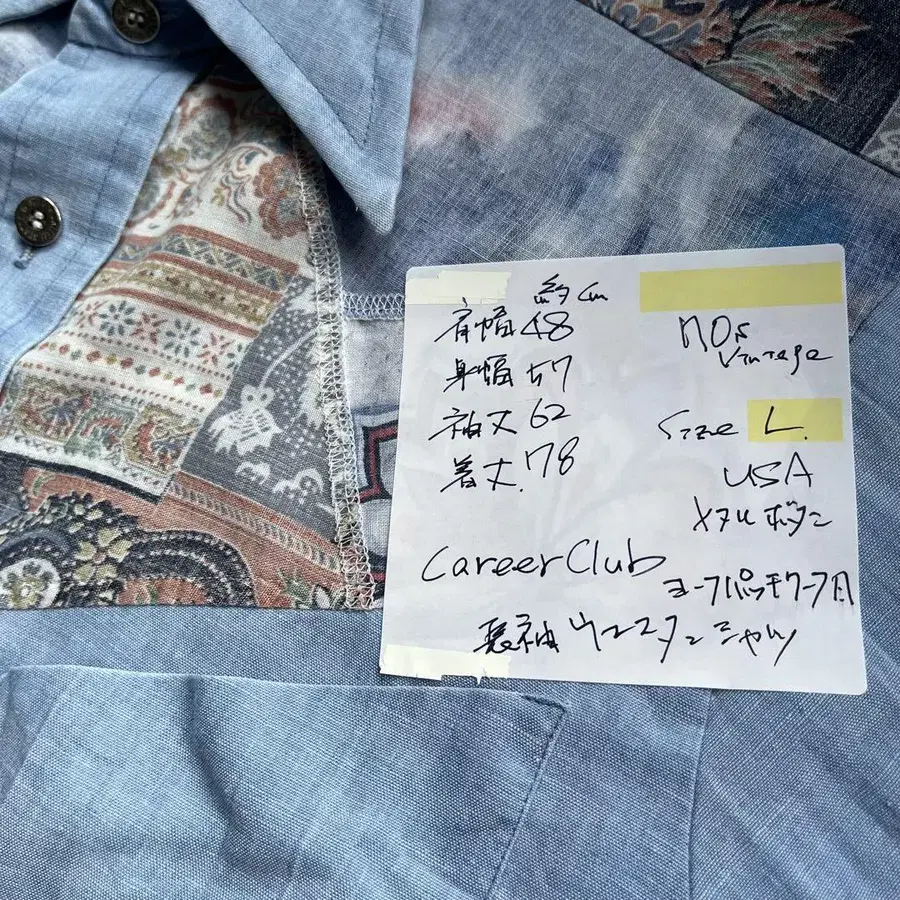 約cm
肩幅48
身幅57
袖丈62
着丈.78
70s
Vintage
Size L.
USA
メタルボタン
Career Club
ヨークパッチワーク
長袖ウエスタンシャツ